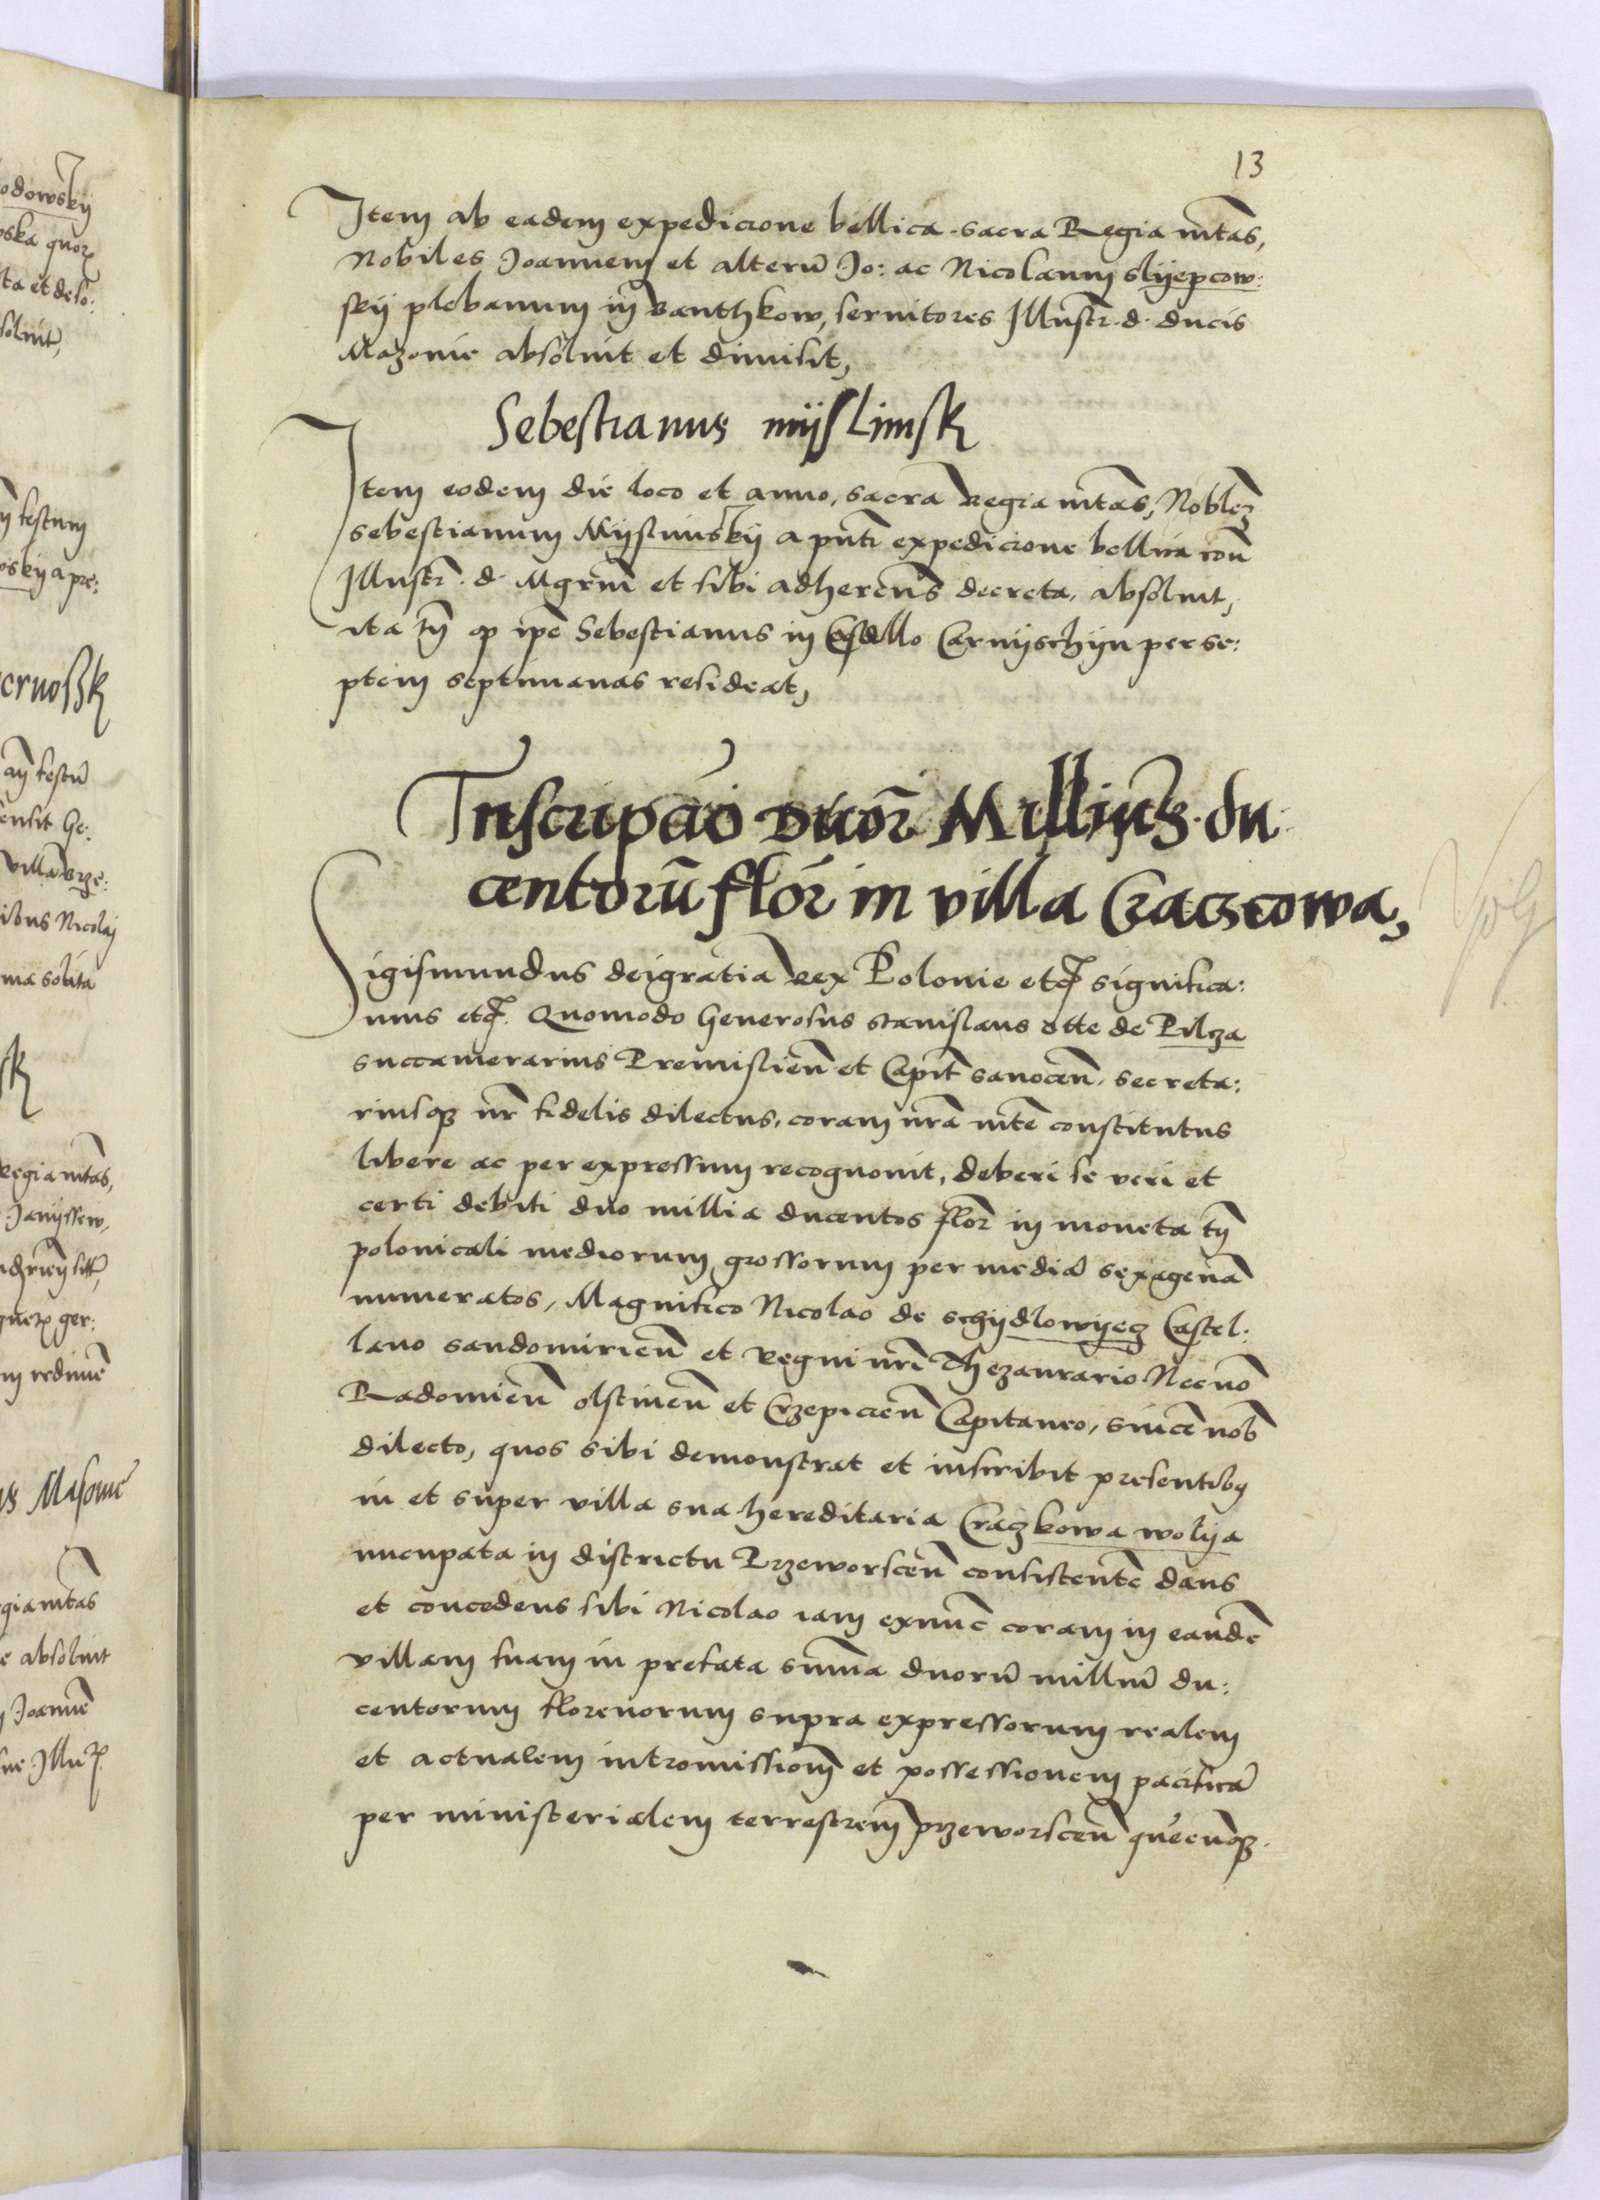 13
Item ab eadem expedicione bellica sacra Regia mtas,
Nobiles Joannem et alterū Jo: ac Nicolaum slyepcow:
sky plebanum in vanthkow, servitores Illustr. d. ducis
Mazovie absolvit et dimisit,
Sebestianus myslimsk
Item eodem die loco et anno, sacra Regia mtas, Noblez
sebestianum Myslimsky a pñti expedicione bellica con
Illustr. d. Mgrm et sibi adherens decreta, absolvit,
ita tñ qp ipe Sebestianus in Castello Carnyschyn per se:
ptem septimanas resideat,
Inscripcio Duor Milliuz du
centorū flor in villa Craczcowa,
Sigismundus dei gratia Rex Polonie etc significa:
mus etc. Quomodo Generosus Stanislaus otte de Pilcza
succamerarius Premislien et Capit sanocen, secreta:
riusqz nr fidelis dilectus, coram nra mte constitutus
libere ac per expressum recognovit, deberi se veri et
certi debiti duo millia ducentos flor in moneta tñ
polonicali mediorum grossorum per mediā sexagenā
numeratos, Magnifico Nicolao de schydlowyecz Castel:
lano sandomirien et Regni nri Thezaurario Necnō
Radomien olstinen et Crzepicien Capitaneo, sincē nob
dilecto, quos sibi demonstrat et inscribit presentibq
in et super villa sua hereditaria Craczkowa wolya
nucupata in districtu Przeworscen consistentē dans
et concedens sibi Nicolao iam exnūc coram in eandē
villam suam in prefata sūma duorū milliū du:
centorum florenorum supra expressorum realem
et actualem intromissiom et possessionem pacificā
per ministerialem terrestrem przeworscen quēcuqz